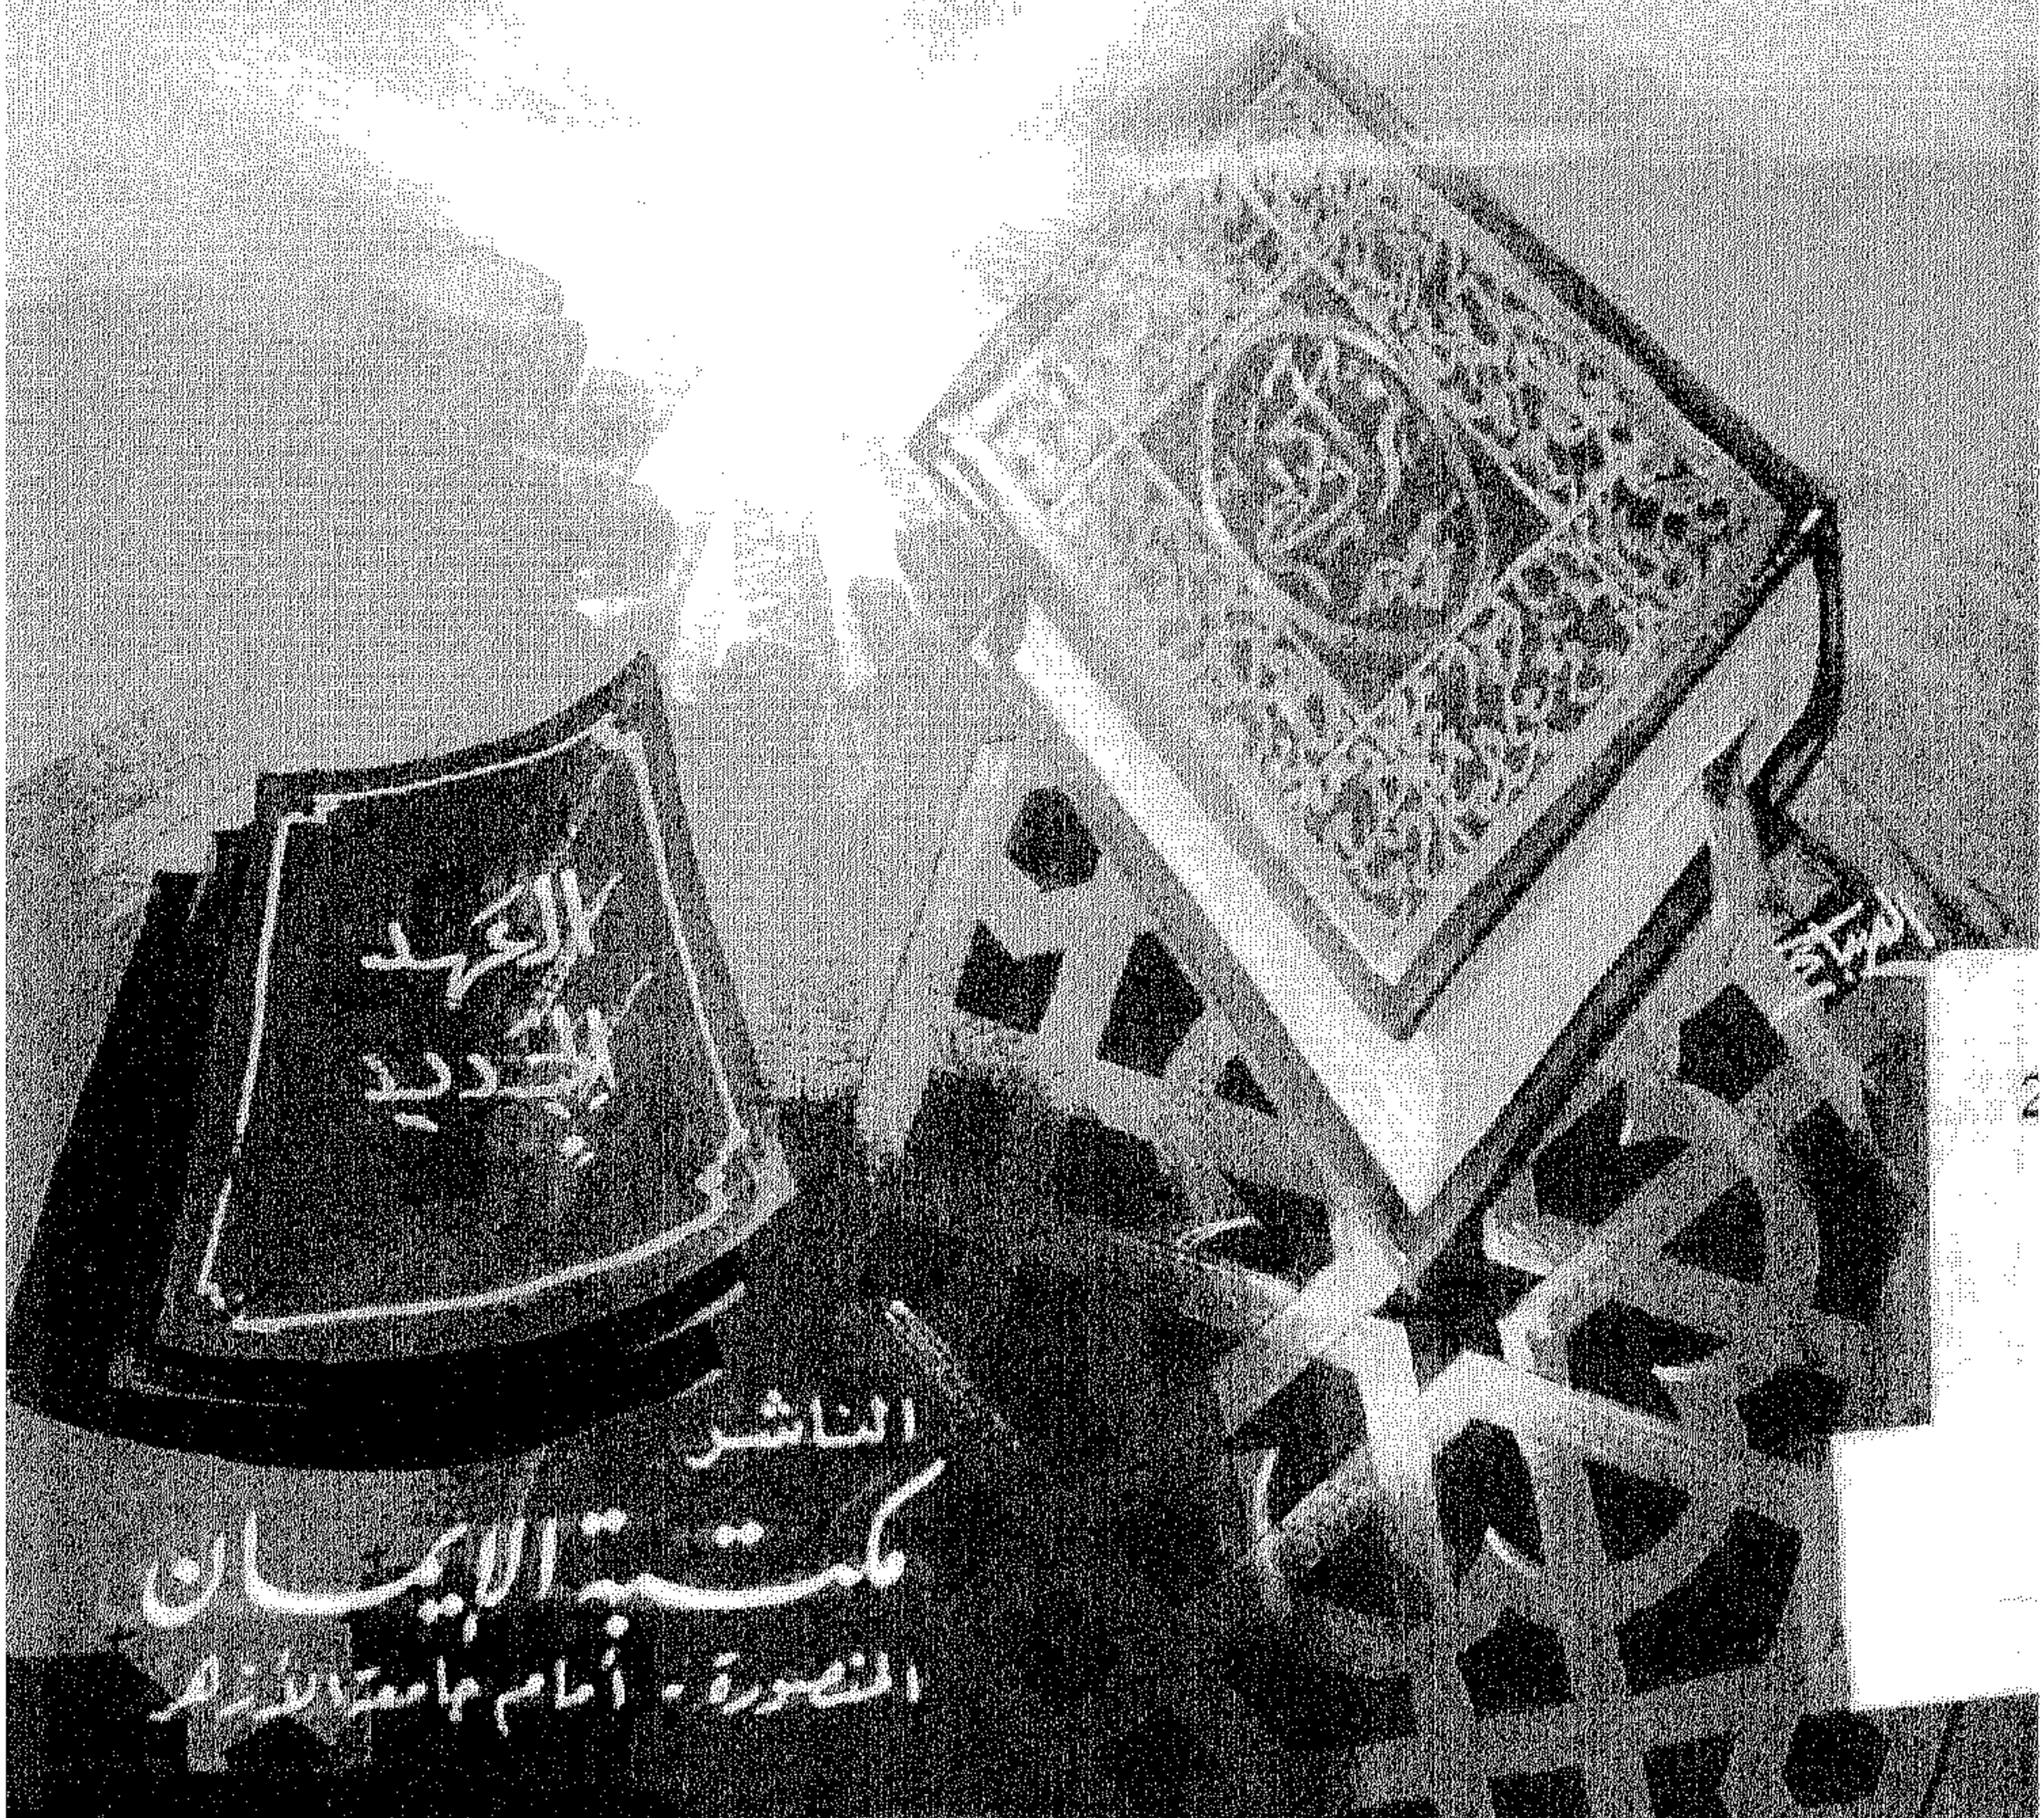 العهد
الجديد
الناشر
مكتبة الإيمان
المنصورة - أمام جامعة الأزهر
2